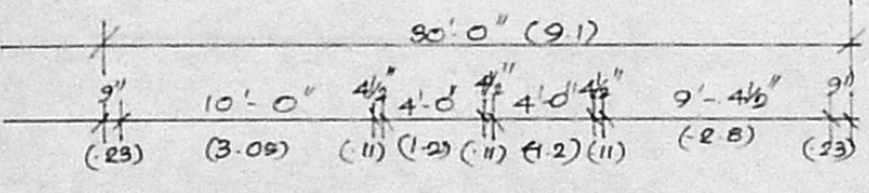 30'-0" (9.1)
9" 10'-0" 4½" 4'-0" 4½" 4'-0" 4½" 9'-4½" 9"
(.23) (3.05) (.11) (1.2) (.11) (1.2) (.11) (2.8) (.23)